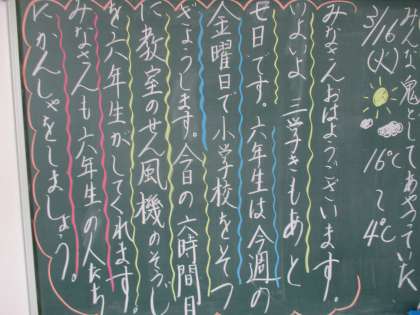 3/16
(火)
16℃
〜
4℃
みなさんおはようございます。
いよいよ三学きもあと
七日です。六年生は今週の
金曜日で小学校をそつ
ぎょうします。今日の六時間目
に教室のせん風機のそうじ
を六年生がしてくれます。
みなさんも六年生の人たち
にかんしゃをしましょう。